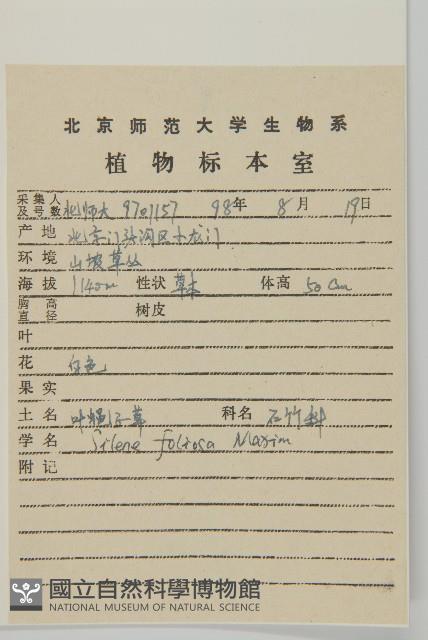 北京师范大学生物系
植物标本室
采集人及号数 北师大 9701157 98年 8月 19日
产地 北京门头沟区小龙门
环境 山坡草丛
海拔 1140m 性状 草本 体高 50 cm
胸高直径 树皮
叶
花 白色
果实
土名 叶麦瓶草 科名 石竹科
学名 Silene foliosa Maxim
附记
國立自然科學博物館
NATIONAL MUSEUM OF NATURAL SCIENCE